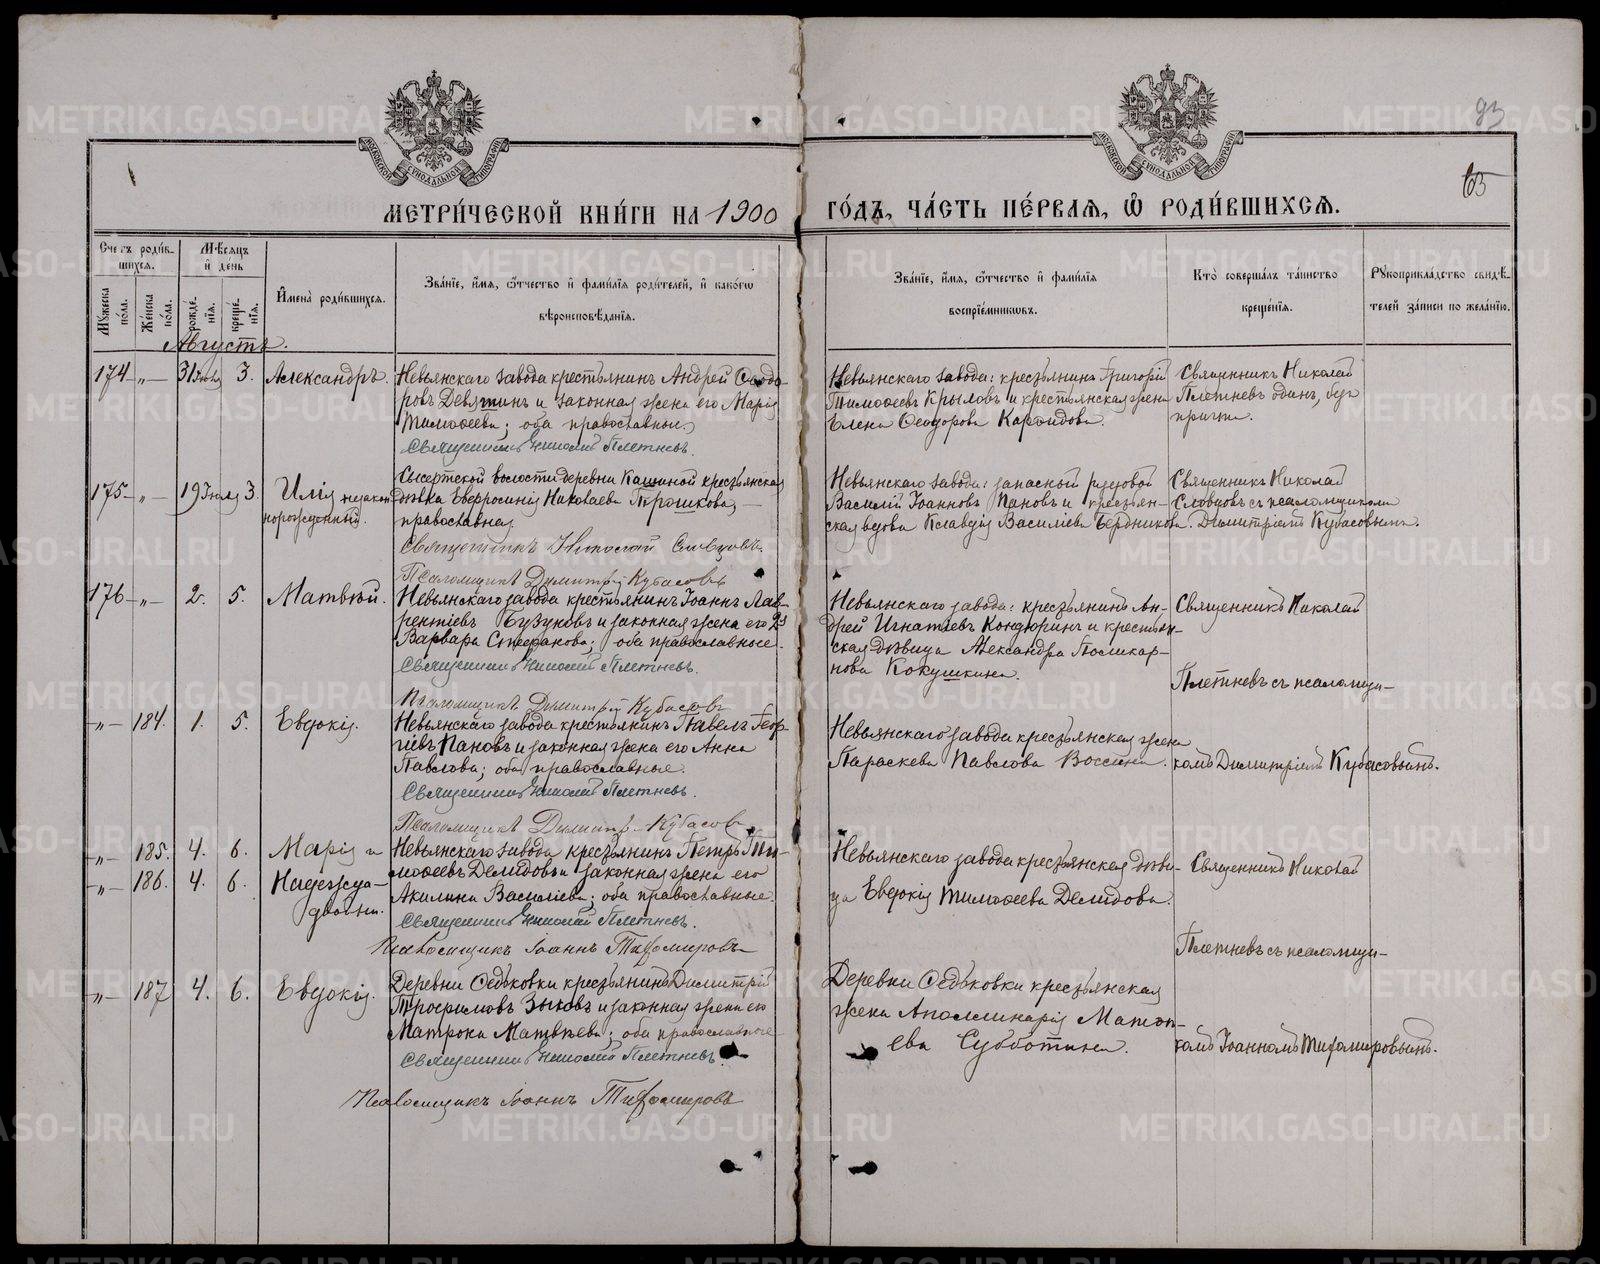 93
65
МЕТРИ́ЧЕСКОЙ КНИ́ГИ НА 1900
ГО́ДЪ, ЧА́СТЬ ПЕ́РВАЯ, Ѿ РОДИ́ВШИХСЯ.
Сче́тъ роди́в-
шихся.
Мꙋ́жеска по́ла.
Же́нска по́ла.
Мѣ́сяцъ и҆ де́нь
рожде́нїя.
креще́нїя.
И҆мена̀ роди́вшихся.
Зва́нїе, и҆́мя, ѻ҆́тчество и҆ фами́лїя роди́телей, и҆ како́гѡ
вѣроисповѣ́данїя.
Зва́нїе, и҆́мя, ѻ҆́тчество и҆ фами́лїя
воспрїе́мниковъ.
Кто̀ соверша́лъ та́инство
креще́нїя.
Рꙋкоприкла́дство свидѣ́-
телей за́писи по жела́нїю.
Августъ.
174 —„— 31 Іюля 3. Александръ.
Невьянскаго завода крестьянинъ Андрей Ѳеодо-
ровъ Девятинъ и законная жена его Марія
Тимофеева; оба православные
Священникъ Николай Плетневъ.
Невьянскаго завода: крестьянинъ Григорій
Тимофеевъ Крыловъ и крестьянская жена
Елена Ѳеодорова
Священникъ Николай
Плетневъ одинъ, безъ
причта.
175 —„— 19 Іюля 3. Илія незакон-
норожденный.
Сысертской волости деревни Кашиной крестьянская
дѣвка Евфросинія Николаева Трошкова, —
православная
Священникъ Николай Словцовъ.
Псаломщикъ Димитрій Кубасовъ
Невьянскаго завода: запасной рядовой
Василій Іоанновъ Пановъ и крестьян-
ская вдова Клавдія Василіева Бердникова.
Священникъ Николай
Словцовъ съ псаломщикомъ
Димитріемъ Кубасовымъ.
176 —„— 2. 5. Матвѣй.
Невьянскаго завода крестьянинъ Іоаннъ Лав-
рентіевъ Бузуновъ и законная жена его
Варвара Стефанова; оба православные.
Священникъ Николай Плетневъ.
Псаломщикъ Димитрій Кубасовъ
Невьянскаго завода: крестьянинъ Ан-
дрей Игнатіевъ Кондюринъ и крестьян-
ская дѣвица Александра Поликар-
пова Кокушкина.
Священникъ Николай
Плетневъ съ псаломщи-
—„— 184. 1. 5. Евдокія.
Невьянскаго завода крестьянинъ Павелъ Геор-
гіевъ Пановъ и законная жена его Анна
Павлова; оба православные.
Священникъ Николай Плетневъ.
Псаломщикъ Димитр. Кубасовъ
Невьянскаго завода крестьянская жена
Параскева Павлова
комъ Димитріемъ Кубасовымъ.
—„— 185. 4. 6. Марія и
—„— 186. 4. 6. Надежда —
двойни.
Невьянскаго завода крестьянинъ Петръ Ти-
мофеевъ Демидовъ и законная жена его
Акилина Василіева; оба православные.
Священникъ Николай Плетневъ.
Псаломщикъ Іоаннъ Тихомировъ
Невьянскаго завода крестьянская дѣви-
ца Евдокія Тимофеева Демидова.
Священникъ Николай
Плетневъ съ псаломщи-
—„— 187 4. 6. Евдокія.
Деревни Ѳедьковки крестьянинъ Димитрій
Трофимовъ Зыковъ и законная жена его
Матрона Матвѣева; оба православные
Священникъ Николай Плетневъ.
Псаломщикъ Іоаннъ Тихомировъ
Деревни Ѳедьковки крестьянская
жена Аполлинарія
Субботина.
комъ Іоанномъ Тихомировымъ.
METRIKI.GASO-URAL.RU